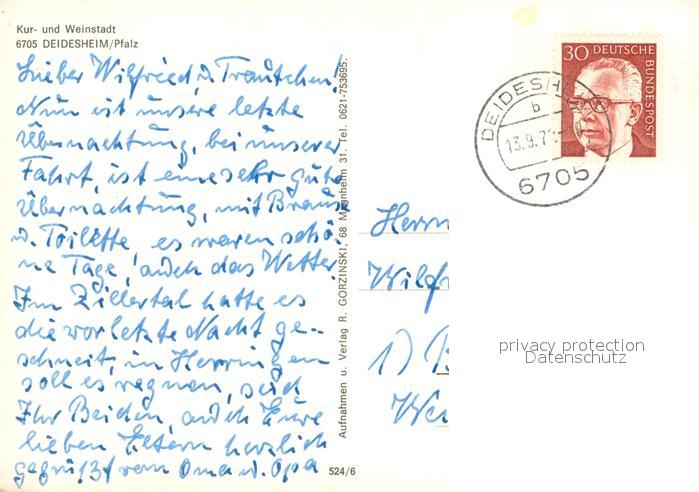 Kur- und Weinstadt
6705 DEIDESHEIM/Pfalz
Lieber Wilfried, u. Trautchen!
Nun ist unsere letzte
Übernachtung, bei unserer
Fahrt, ist eine sehr gute
Übernachtung, mit Braus
u. Toilette, es waren schö-
ne Tage, auch das Wetter.
Im Zillertal hatte es
die vorletzte Nacht ge-
schneit, in Herringen
soll es regnen, seid
Ihr Beiden, auch Eure
lieben Eltern herzlich
gegrüßt von Oma u. Opa
Aufnahmen u. Verlag R. GORZINSKI, 68 Mannheim 31. Tel. 0621-753695.
524/6
30 DEUTSCHE
BUNDESPOST
DEIDESH
b
13.9.7
6705
Herrn
Wilfr
1)
We
privacy protection
Datenschutz